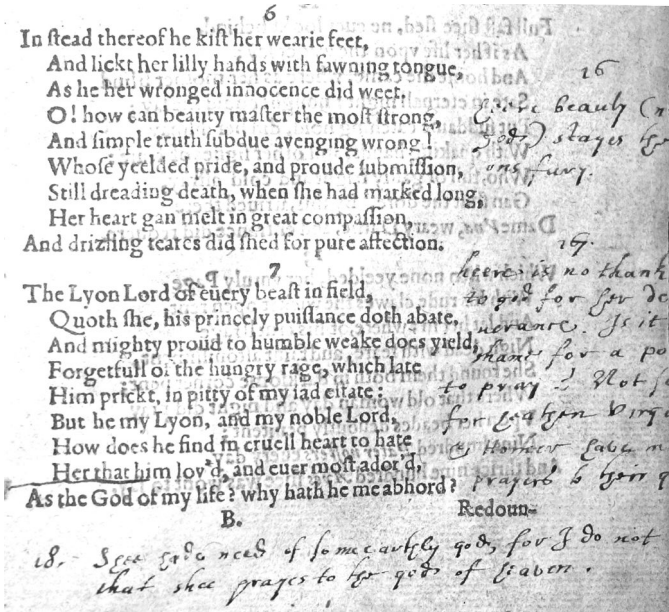 6
In ſtead thereof he kiſt her wearie feet,
And lickt her lilly hands with fawning tongue,
As he her wronged innocence did weet.
O! how can beauty maſter the moſt ſtrong,
And ſimple truth ſubdue avenging wrong!
Whoſe yeelded pride, and proude ſubmiſſion,
Still dreading death, when ſhe had marked long,
Her heart gan melt in great compaſſion,
And drizling teares did ſhed for pure affection.
16
beauty (n
god) stayes the
ons fury.
7
The Lyon Lord of euery beaſt in field,
Quoth ſhe, his princely puiſſance doth abate,
And mighty proud to humble weake does yield,
Forgetfull of the hungry rage, which late
Him prickt, in pitty of my ſad eſtate:
But he my Lyon, and my noble Lord,
How does he find in cruell heart to hate
Her that him lov'd, and euer moſt ador'd,
As the God of my life? why hath he me abhord?
17.
heere is no thank
to god for her de
liverance. Is it
shame for a po
to pray? Not s
for heathen Virg
& Homer have m
prayers to their g
B.
Redoun-
18. Shee need of some earthly gods, for I do not
that shee prayes to the gods of heaven.